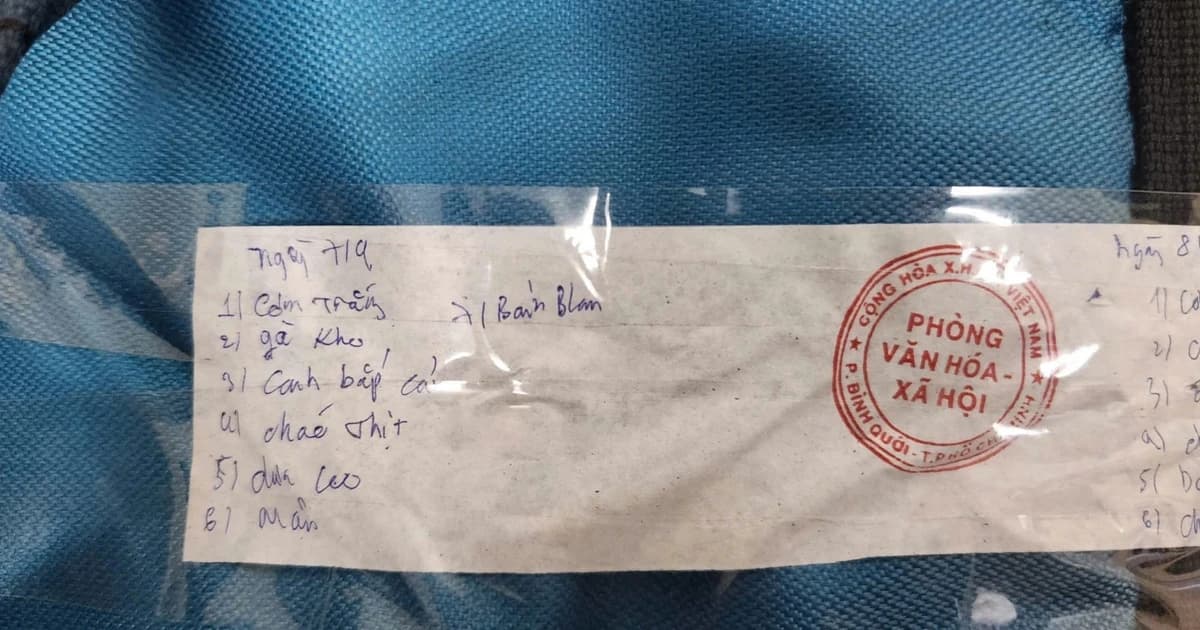 Ngày 7/9
1) Cơm trắng
2) gà kho
3) Canh bắp cải
4) cháo thịt
5) dưa leo
6) Mận
7) Bánh Blan
CỘNG HÒA X.H. VIỆT NAM
PHÒNG
VĂN HÓA -
XÃ HỘI
★ P. BÌNH QUỚI - T.PHỐ ★
Ngày 8
1)
2)
3)
4)
5)
6)